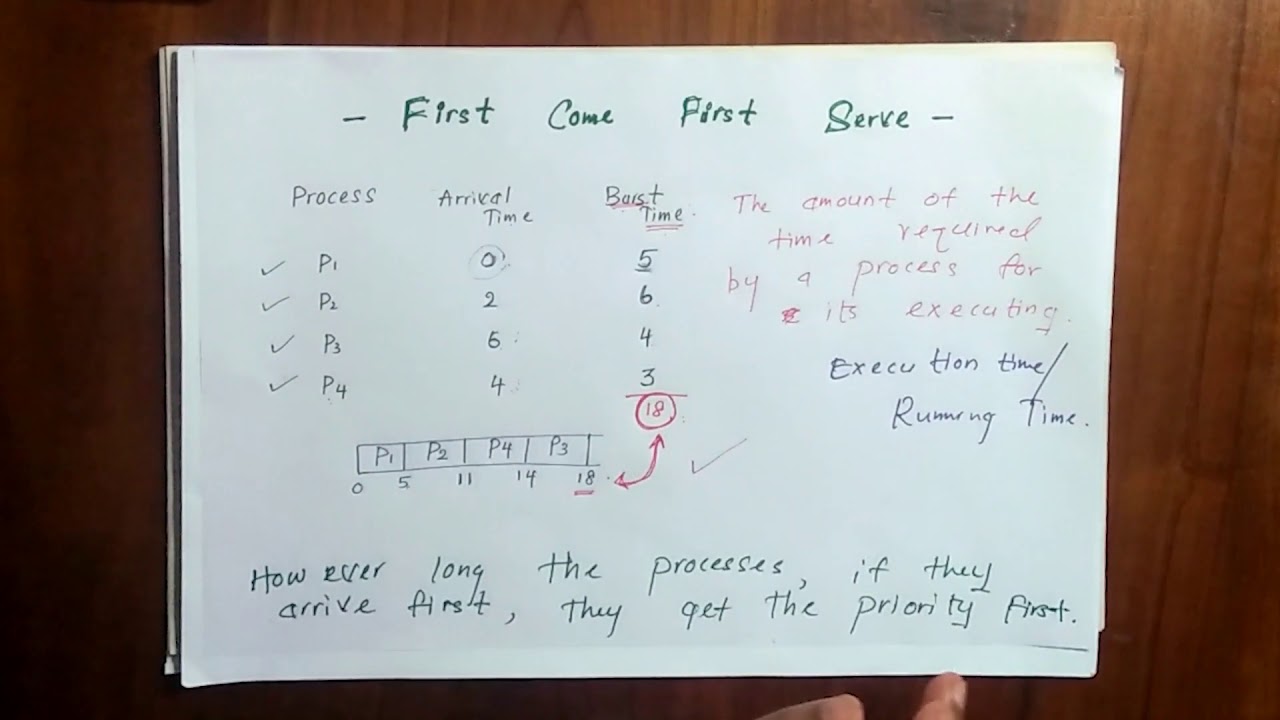 - First Come First Serve -
Process Arrival Time Burst Time.
P1 0 5
P2 2 6
P3 6 4
P4 4 3
18
The amount of the
time required
by a process for
its executing.
Execution time/
Running Time.
P1 P2 P4 P3
0 5 11 14 18
However long the processes, if they
arrive first, they get the priority first.